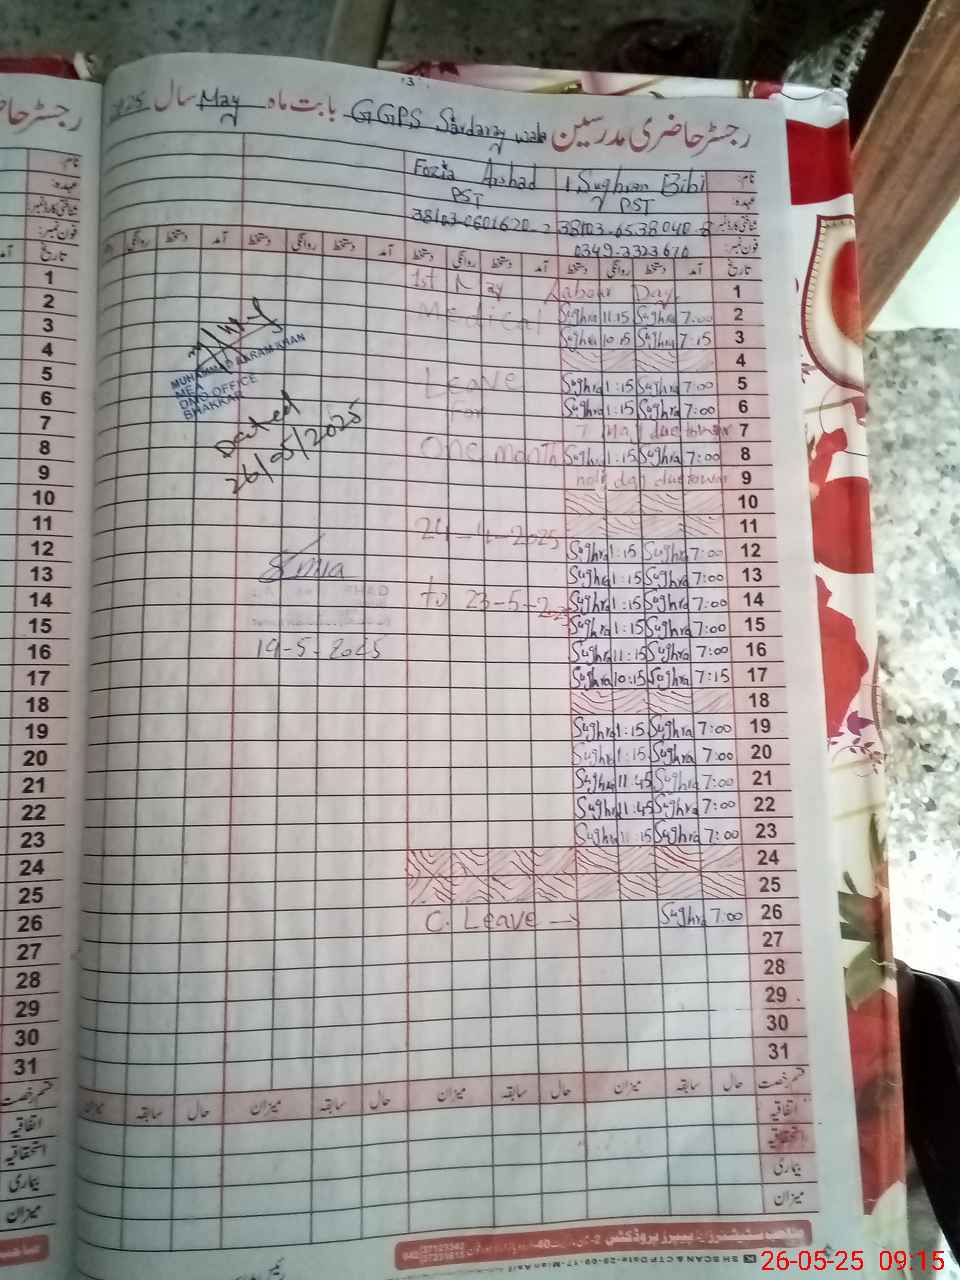 رجسٹر حاضری مدرسین GGPS Sardaray wala بابت ماہ May سال 2025
نام: 1 Sughran Bibi Fozia Arshad
عہدہ: PST PST
شناختی کارڈ نمبر: 38103-6538040-8
فون نمبر: 0349-3323670
تاریخ آمد دستخط روانگی دستخط آمد دستخط روانگی دستخط آمد دستخط روانگی دستخط آمد دستخط روانگی
1 1st May Labour Day
2 7:00 Sughra 11:15 Sughra Medical
3 7:15 Sughra 10:15 Sughra
4
5 7:00 Sughra 1:15 Sughra Leave
6 7:00 Sughra 1:15 Sughra For
7 7 May
8 7:00 Sughra 1:15 Sughra one month
9
10
11 24-4-2025
12 7:00 Sughra 1:15 Sughra
13 7:00 Sughra 1:15 Sughra
14 7:00 Sughra 1:15 Sughra to 23-5-2025
15 7:00 Sughra 1:15 Sughra
16 7:00 Sughra 11:15 Sughra
17 7:15 Sughra 10:15 Sughra
18
19 7:00 Sughra 1:15 Sughra
20 7:00 Sughra 1:15 Sughra
21 7:00 Sughra 11:45 Sughra
22 7:00 Sughra 11:45 Sughra
23 7:00 Sughra 11:15 Sughra
24
25
26 7:00 Sughra C. Leave →
27
28
29
30
31
MUHAMMAD AKRAM KHAN
MEA
DMO OFFICE
BHAKKAR
Dated
26/05/2025
19-5-2025
قسم رخصت حال سابقہ میزان حال سابقہ میزان حال سابقہ میزان حال سابقہ میزان
اتفاقیہ
استحقاقیہ
بیماری
میزان
26-05-25 09:15